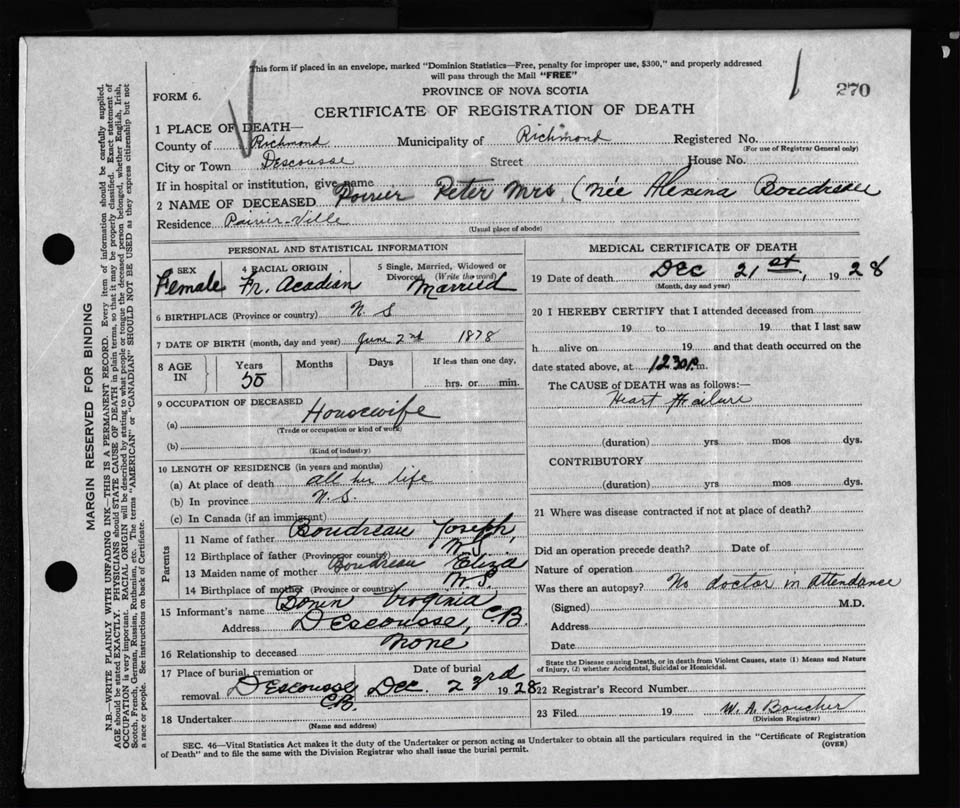 This form if placed in an envelope, marked "Dominion Statistics—Free, penalty for improper use, $300," and properly addressed
will pass through the Mail "FREE"
270
PROVINCE OF NOVA SCOTIA
FORM 6.
CERTIFICATE OF REGISTRATION OF DEATH
1 PLACE OF DEATH—
County of Richmond Municipality of Richmond Registered No.
(For use of Registrar General only)
City or Town Descousse Street House No.
If in hospital or institution, give name
2 NAME OF DECEASED Poirier Peter Mrs (née Alexina Boudreau
Residence Poirier-Ville
(Usual place of abode)
PERSONAL AND STATISTICAL INFORMATION
3 SEX 4 RACIAL ORIGIN 5 Single, Married, Widowed or
Divorced (Write the word)
Female Fr. Acadian Married
6 BIRTHPLACE (Province or country) N. S
7 DATE OF BIRTH (month, day and year) June 2nd 1878
8 AGE IN Years Months Days If less than one day,
50 hrs. or min.
9 OCCUPATION OF DECEASED
(a) Housewife
(Trade or occupation or kind of work)
(b)
(Kind of industry)
10 LENGTH OF RESIDENCE (in years and months)
(a) At place of death all her life
(b) In province N. S.
(c) In Canada (if an immigrant)
Parents
11 Name of father Boudreau Joseph,
12 Birthplace of father (Province or country) N. S.
13 Maiden name of mother Boudreau Eliza
14 Birthplace of mother (Province or country) N S
15 Informant's name Virginia
Address D'Escousse, C.B.
16 Relationship to deceased None
17 Place of burial, cremation or removal Date of burial
D'Escousse C.B. Dec. 23rd 1928
18 Undertaker
(Name and address)
MEDICAL CERTIFICATE OF DEATH
19 Date of death Dec 21st, 1928
(Month, day and year)
20 I HEREBY CERTIFY that I attended deceased from
19 to 19 that I last saw
h alive on 19 and that death occurred on the
date stated above, at 12 30 p.m.
The CAUSE of DEATH was as follows:—
Heart Failure
(duration) yrs mos dys.
CONTRIBUTORY
(duration) yrs mos dys.
21 Where was disease contracted if not at place of death?
Did an operation precede death? Date of
Nature of operation
Was there an autopsy? No doctor in attendance
(Signed) M.D.
Address
Date
State the Disease causing Death, or in death from Violent Causes, state (1) Means and Nature
of Injury, (2) whether Accidental, Suicidal or Homicidal.
22 Registrar's Record Number
23 Filed 19 W. A. Boucher
(Division Registrar)
SEC. 46—Vital Statistics Act makes it the duty of the Undertaker or person acting as Undertaker to obtain all the particulars required in the "Certificate of Registration
of Death" and to file the same with the Division Registrar who shall issue the burial permit.
(OVER)
MARGIN RESERVED FOR BINDING
N.B.—WRITE PLAINLY WITH UNFADING INK—THIS IS A PERMANENT RECORD. Every item of information should be carefully supplied.
AGE should be stated EXACTLY. PHYSICIANS should STATE CAUSE OF DEATH in plain terms, so that it may be properly classified. Exact statement of
OCCUPATION is very important. RACIAL ORIGIN will be described by stating to what people or tongue the deceased person belonged, whether English, Irish,
Scotch, French, German, Russian, Ruthenian, etc. The terms "AMERICAN" or "CANADIAN" SHOULD NOT BE USED as they express citizenship but not
a race or people. See instructions on back of Certificate.